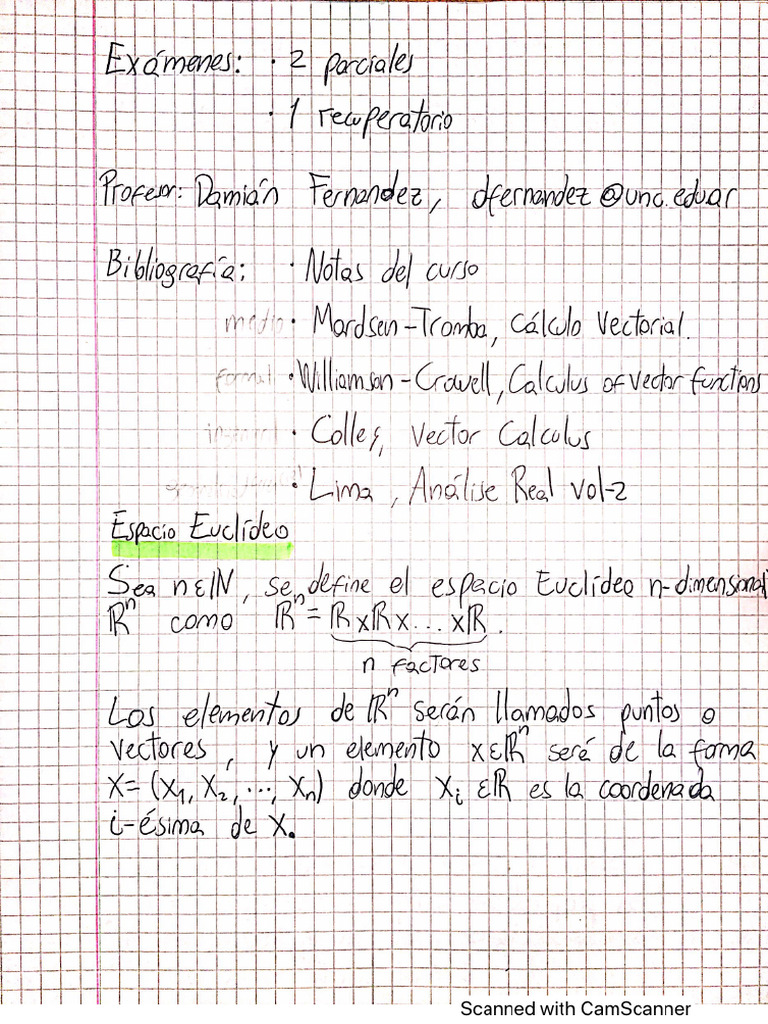 Exámenes: · 2 parciales
· 1 recuperatorio
Profesor: Damián Fernandez, dfernandez@unc.edu.ar
Bibliografía: · Notas del curso
medio · Mardsen-Tromba, Cálculo Vectorial.
formal · Williamson-Crowell, Calculus of vector functions
· Colley, Vector Calculus
· Lima, Análise Real vol-2
Espacio Euclídeo
Sea n ∈ ℕ, se define el espacio Euclídeo n-dimensional
ℝⁿ como ℝⁿ = ℝ x ℝ x ... x ℝ.
n factores
Los elementos de ℝⁿ serán llamados puntos o
vectores, y un elemento x ∈ ℝⁿ será de la forma
X = (X₁, X₂, ..., Xₙ) donde Xᵢ ∈ ℝ es la coordenada
i-ésima de X.
Scanned with CamScanner